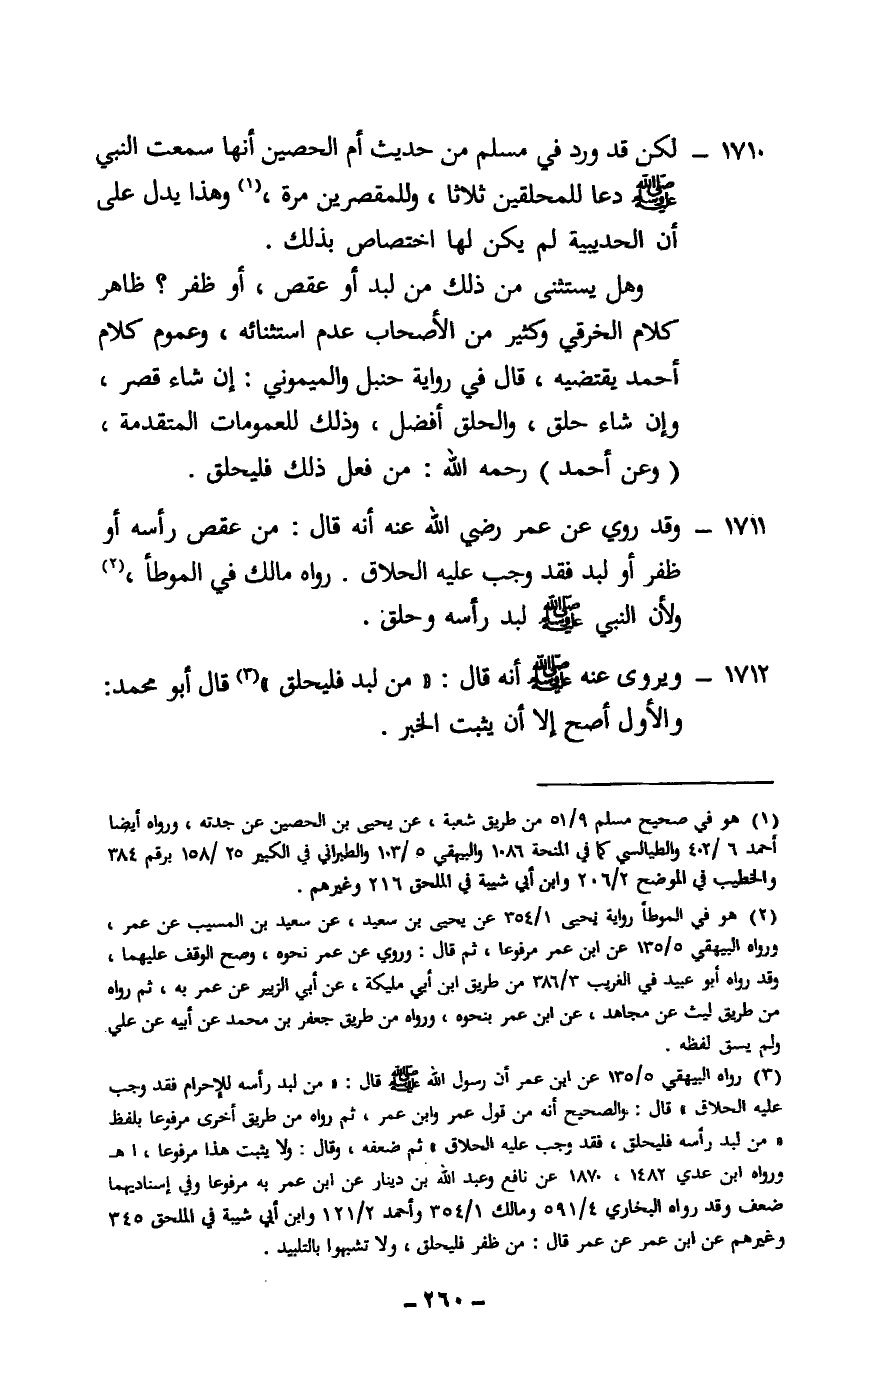 ١٧١٠ – لكن قد ورد في مسلم من حديث أم الحصين أنها سمعت النبي
ﷺ دعا للمحلقين ثلاثا ، وللمقصرين مرة ،(١) وهذا يدل على
أن الحديبية لم يكن لها اختصاص بذلك .
وهل يستثنى من ذلك من لبد أو عقص ، أو ظفر ؟ ظاهر
كلام الخرقي وكثير من الأصحاب عدم استثنائه ، وعموم كلام
أحمد يقتضيه ، قال في رواية حنبل والميموني : إن شاء قصر ،
وإن شاء حلق ، والحلق أفضل ، وذلك للعمومات المتقدمة ،
( وعن أحمد ) رحمه الله : من فعل ذلك فليحلق .
١٧١١ – وقد روي عن عمر رضي الله عنه أنه قال : من عقص رأسه أو
ظفر أو لبد فقد وجب عليه الحلاق . رواه مالك في الموطأ ،(٢)
ولأن النبي ﷺ لبد رأسه وحلق .
١٧١٢ – ويروى عنه ﷺ أنه قال : « من لبد فليحلق »(٣) قال أبو محمد:
والأول أصح إلا أن يثبت الخبر .
(١) هو في صحيح مسلم ٥١/٩ من طريق شعبة ، عن يحيى بن الحصين عن جدته ، ورواه أيضا
أحمد ٦ /٤٠٢ والطيالسي كما في المنحة ١٠٨٦ والبيهقي ٥ /١٠٣ والطبراني في الكبير ٢٥ /١٥٨ برقم ٣٨٤
والخطيب في الموضح ٢٠٦/٢ وابن أبي شيبة في الملحق ٢١٦ وغيرهم .
(٢) هو في الموطأ رواية يحيى ٣٥٤/١ عن يحيى بن سعيد ، عن سعيد بن المسيب عن عمر ،
ورواه البيهقي ١٣٥/٥ عن ابن عمر مرفوعا ، ثم قال : وروي عن عمر نحوه ، وصح الوقف عليهما ،
وقد رواه أبو عبيد في الغريب ٣٨٦/٣ من طريق ابن أبي مليكة ، عن أبي الزبير عن عمر به ، ثم رواه
من طريق ليث عن مجاهد ، عن ابن عمر بنحوه ، ورواه من طريق جعفر بن محمد عن أبيه عن علي
ولم يسق لفظه .
(٣) رواه البيهقي ١٣٥/٥ عن ابن عمر أن رسول الله ﷺ قال : « من لبد رأسه للإحرام فقد وجب
عليه الحلاق » قال : والصحيح أنه من قول عمر وابن عمر ، ثم رواه من طريق أخرى مرفوعا بلفظ
« من لبد رأسه فليحلق ، فقد وجب عليه الحلاق » ثم ضعفه ، وقال : ولا يثبت هذا مرفوعا ، ا هـ
ورواه ابن عدي ١٤٨٢ ، ١٨٧٠ عن نافع وعبد الله بن دينار عن ابن عمر به مرفوعا وفي إسناديهما
ضعف وقد رواه البخاري ٥٩١/٤ ومالك ٣٥٤/١ وأحمد ١٢١/٢ وابن أبي شيبة في الملحق ٣٤٥
وغيرهم عن ابن عمر عن عمر قال : من ظفر فليحلق ، ولا تشبهوا بالتلبيد .
– ٢٦٠ –